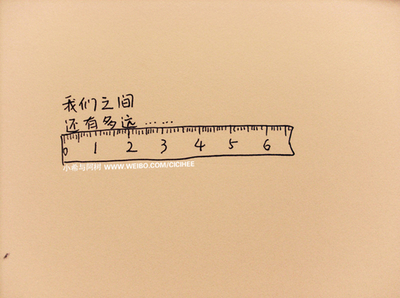 我们之间
还有多远……
0 1 2 3 4 5 6
小希与阿树 WWW.WEIBO.COM/CICIHEE